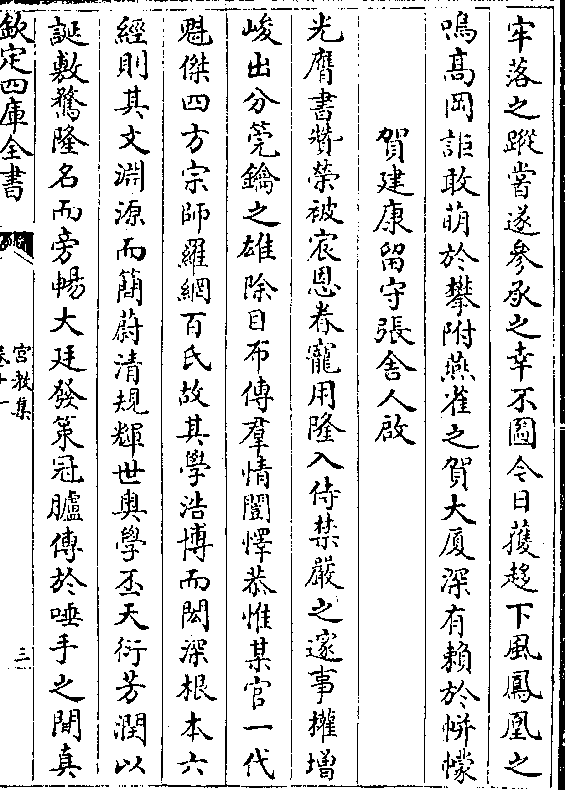 牢落之蹤嘗遂參承之幸不圖今日獲趍下風鳳凰之
鳴髙岡詎敢萌於攀附燕雀之賀大厦深有賴於帡幪
賀建康留守張舎人啟
光膺書贊榮被宸恩眷寵用隆入侍禁嚴之邃事權增
峻出分莞鑰之雄除目布傳羣情闓懌恭惟某官一代
魁傑四方宗師羅網百氏故其學浩博而閎深根本六
經則其文淵源而簡蔚清規輝世奥學丕天衍芳潤以
誕敷驚隆名而旁暢大廷發策冠臚傳於唾手之間真
欽定四庫全書
宫教集
卷十一
三